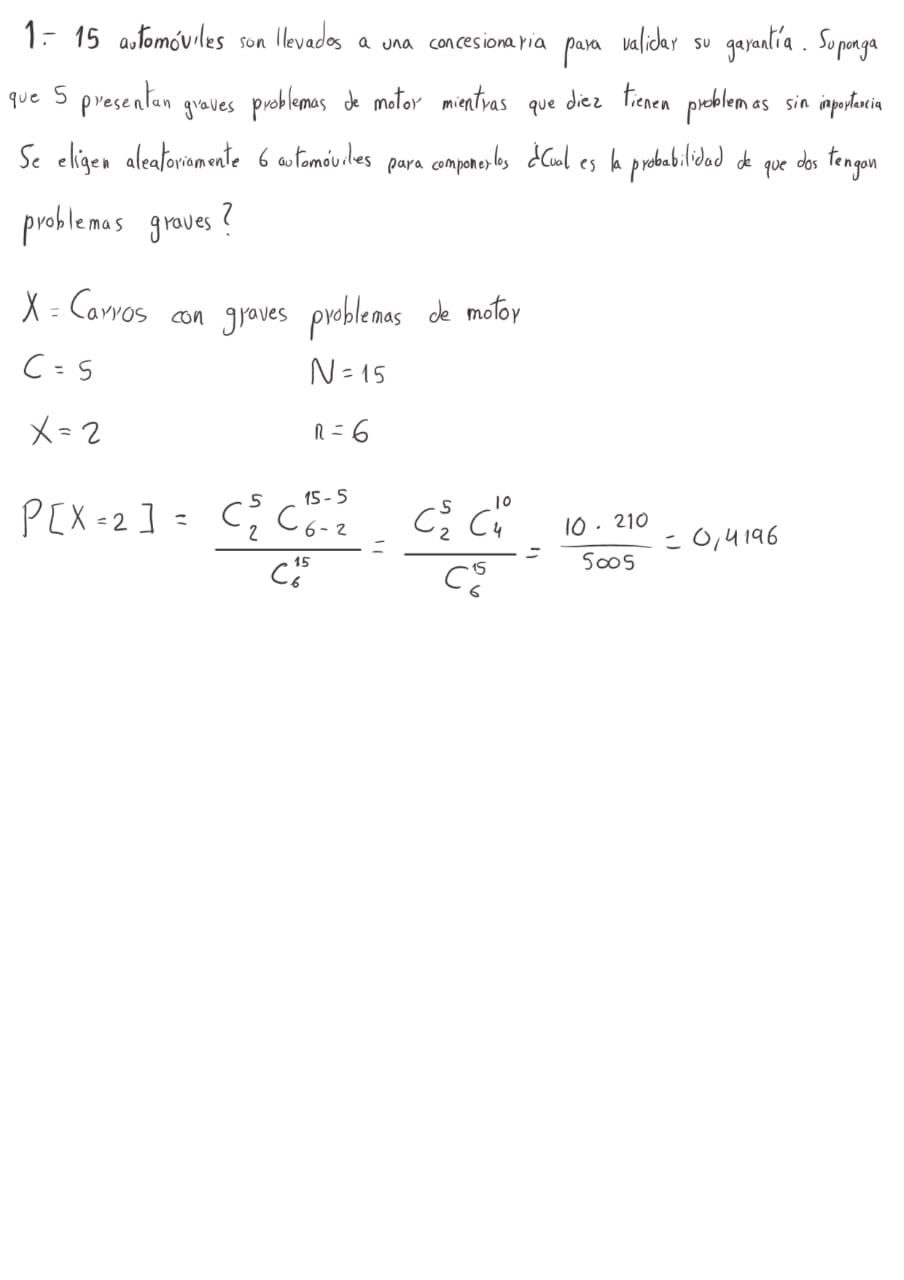 1.- 15 automóviles son llevados a una concesionaria para validar su garantía. Suponga
que 5 presentan graves problemas de motor mientras que diez tienen problemas sin importancia
Se eligen aleatoriamente 6 automóviles para componerlos ¿Cual es la probabilidad de que dos tengan
problemas graves?
X = Carros con graves problemas de motor
C = 5 N = 15
X = 2 n = 6
P[X=2] = C⁵₂ C¹⁵⁻⁵₆₋₂ / C¹⁵₆ = C⁵₂ C¹⁰₄ / C¹⁵₆ = 10 . 210 / 5005 = 0,4196